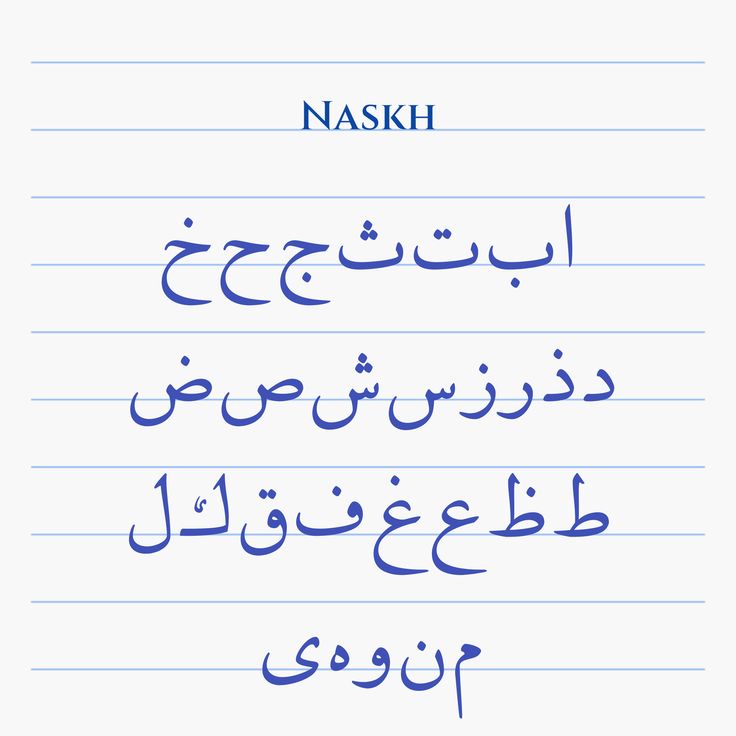 NASKH
ا ب ت ث ج ح خ
د ذ ر ز س ش ص ض
ط ظ ع غ ف ق ك ل
م ن و ه ى